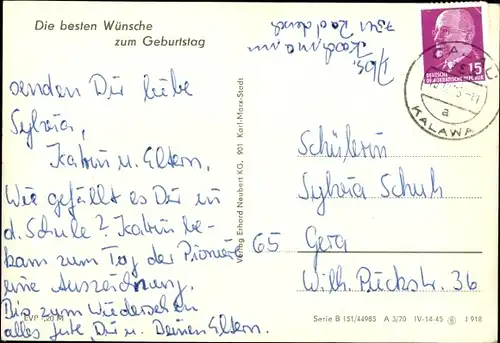 Die besten Wünsche
zum Geburtstag
senden Dir liebe
Sylvia,
Katrin u. Eltern.
Wie gefällt es Dir in
d. Schule? Katrin be-
kam zum Tag der Pioniere
eine Auszeichnung.
Bis zum Wiedersehen
alles gute, Dir u. Deinen Eltern.
EVP -,20 M
Verlag Erhard Neubert KG, 901 Karl-Marx-Stadt
Abs.
Kaufmann
15
DEUTSCHE
DEMOKRATISCHE REPUBLIK
a
KALAWA
Schülerin
Sylvia Schuh
65 Gera
Wilh. Pieckstr. 36
Serie B 151/44985 A 3/70 IV-14-45 J 918